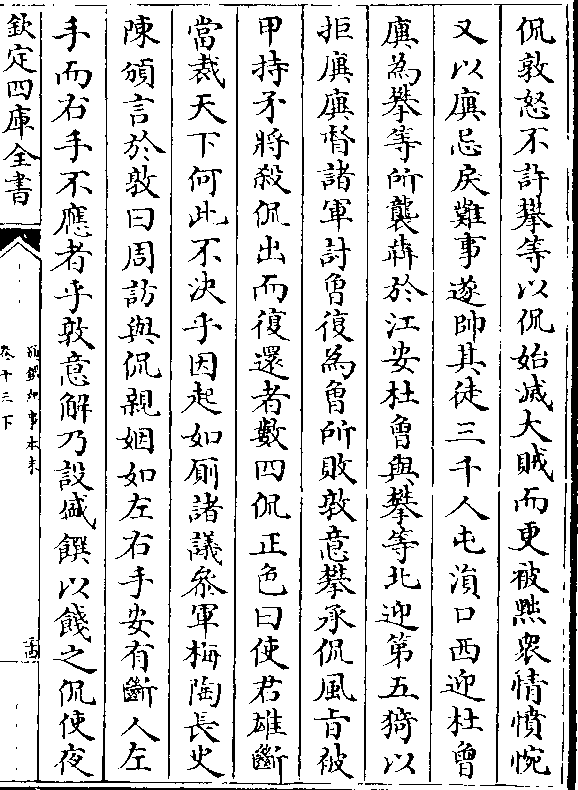 侃敦怒不許攀等以侃始滅大賊而更被黜衆情憤惋
又以廙忌戾難事遂帥其徒三千人屯溳口西迎杜曾
廙為攀等所襲犇於江安杜曾與攀等北迎第五猗以
拒廙廙督諸軍討曾復為曾所敗敦意攀承侃風旨被
甲持矛將殺侃出而復還者數四侃正色曰使君雄斷
當裁天下何此不決乎因起如厠諸議參軍梅陶長史
陳頒言於敦曰周訪與侃親姻如左右手安有斷人左
手而右手不應者乎敦意解乃設盛饌以餞之侃使夜
欽定四庫全書
卷十三下